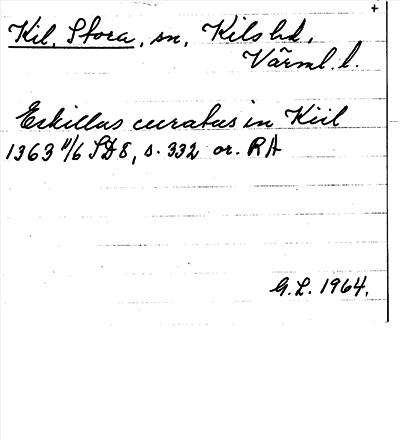 +
Kil, Stora, sn, Kils hd,
Värml. l.
Eskillus curatus in Kiil
1363 11/6 SD 8, s. 332 or. RA
G.L. 1964.